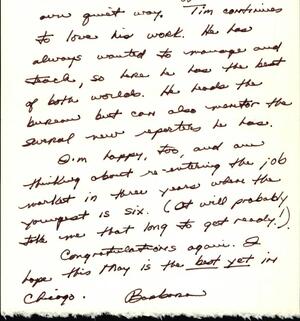 own quiet way. Tim continues
to love his work. He has
always wanted to manage and
teach, so here he has the best
of both worlds. He heads the
bureau but can also mentor the
several new reporters he has.
I'm happy, too, and am
thinking about re-entering the job
market in three years when the
youngest is six. (It will probably
take me that long to get ready!)
Congratulations again. I
hope this May is the best yet in
Chicago. Barbara